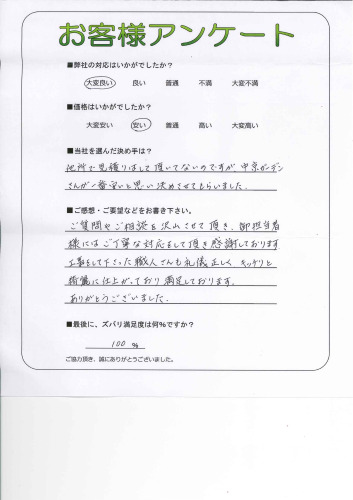 お客様アンケート
■弊社の対応はいかがでしたか？
大変良い 良い 普通 不満 大変不満
■価格はいかがでしたか？
大変安い 安い 普通 高い 大変高い
■当社を選んだ決め手は？
他所で見積りはして頂いてないのですが中京ガーデン
さんが一番安いと思い決めさせてもらいました。
■ご感想・ご要望などをお書き下さい。
ご質問やご相談も沢山させて頂き、御担当者
様にはご丁寧な対応をして頂き感謝しております
工事をして下さった職人さんも礼儀正しく キッチリと
綺麗に仕上がっており満足しております。
ありがとうございました。
■最後に、ズバリ満足度は何％ですか？
100 %
ご協力頂き、誠にありがとうございました。